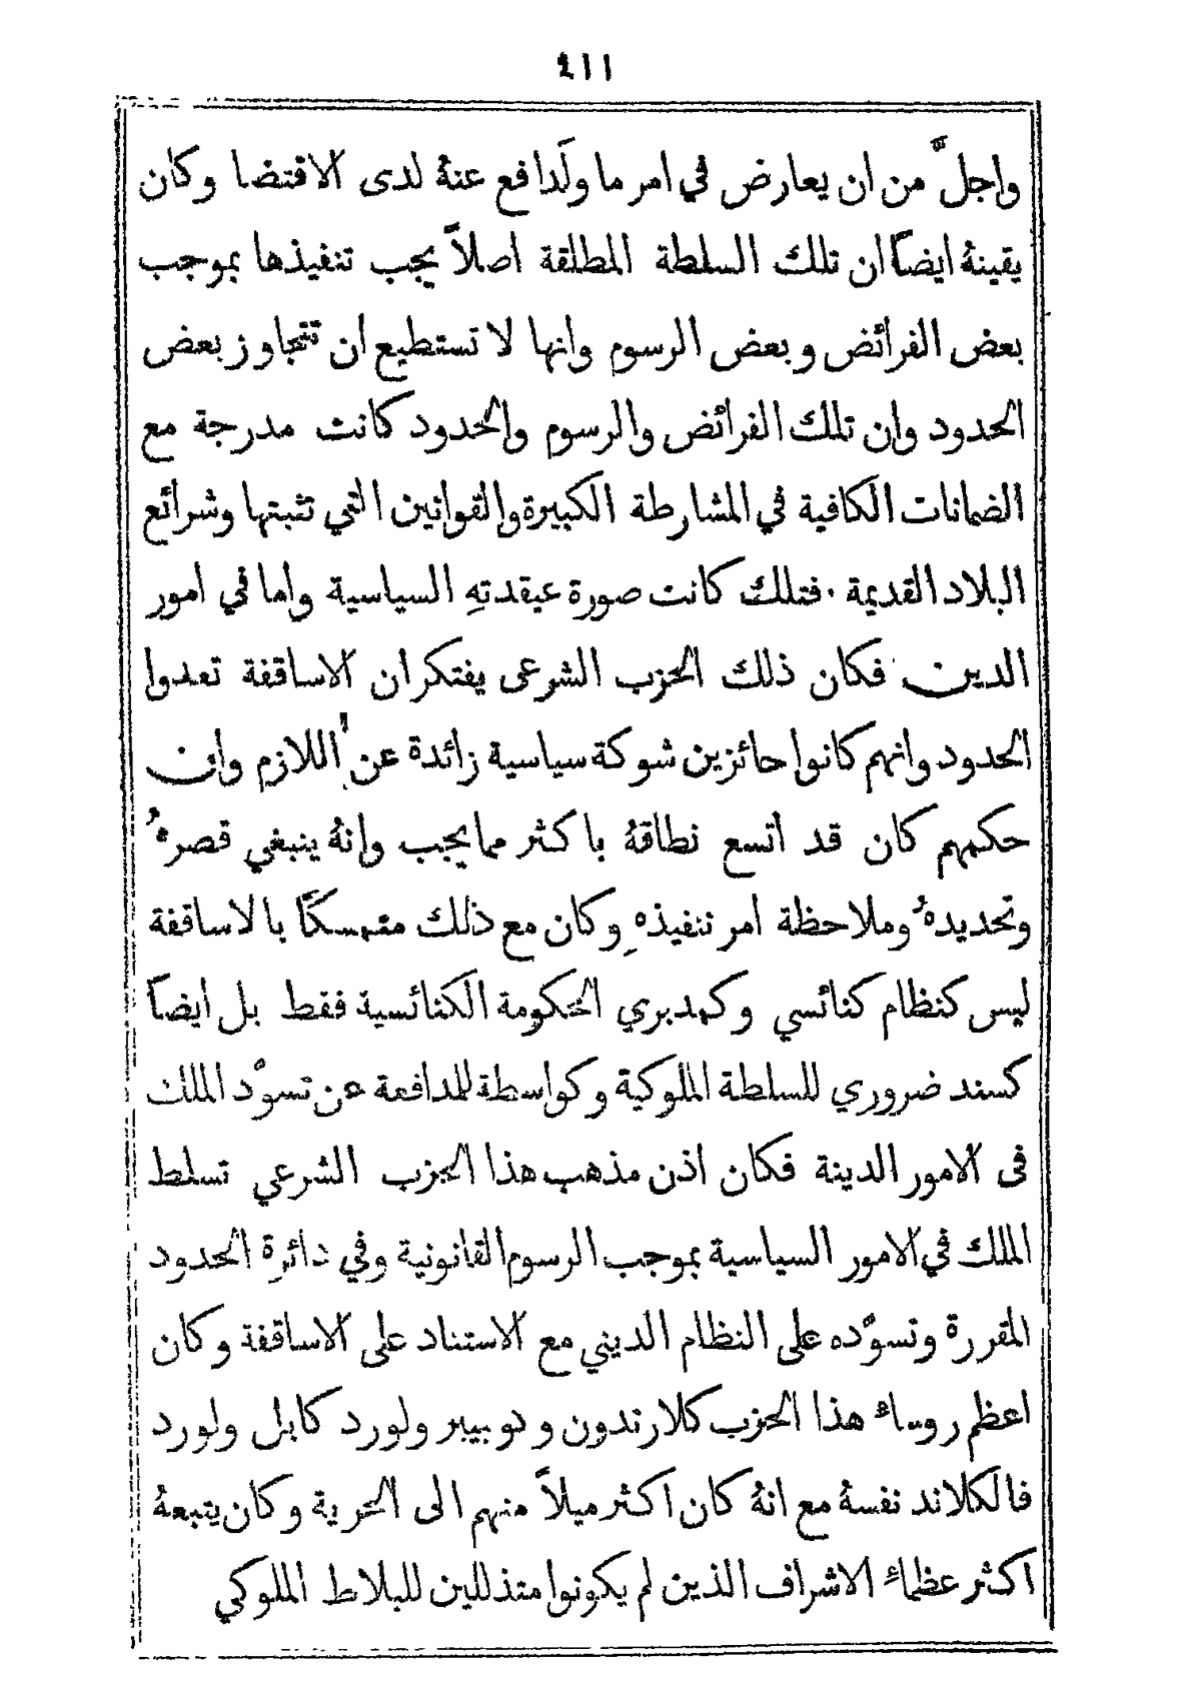 ٤١١
واجلَّ من ان يعارض في امر ما ولَدافع عنهُ لدى الاقتضا وكان
يقينهُ ايضاً ان تلك السلطة المطلقة اصلاً يجب تنفيذها بموجب
بعض الفرائض وبعض الرسوم وانها لا تستطيع ان تتجاوز بعض
الحدود وان تلك الفرائض والرسوم والحدود كانت مدرجة مع
الضمانات الكافية في المشارطة الكبيرة والقوانين التي تثبتها وشرائع
البلاد القديمة . فتلك كانت صورة عيقدتهِ السياسية واما في امور
الدين فكان ذلك الحزب الشرعى يفتكر ان الاساقفة تعدوا
الحدود وانهم كانوا حائزين شوكة سياسية زائدة عن اللازم وان
حكمهم كان قد اتسع نطاقهُ باكثر مما يجب وانهُ ينبغي قصرهُ
وتحديدهُ وملاحظة امر تنفيذهِ وكان مع ذلك متمسكاً بالاساقفة
ليس كنظام كنائسي وكمدبري الحكومة الكنائسية فقط بل ايضاً
كسند ضروري للسلطة الملوكية وكواسطة للمدافعة عن تسوّد الملك
فى الامور الدينة فكان اذن مذهب هذا الحزب الشرعي تسلط
الملك في الامور السياسية بموجب الرسوم القانونية وفي دائرة الحدود
المقررة وتسوّده على النظام الديني مع الاستناد على الاساقفة وكان
اعظم روساء هذا الحزب كلارندون ودوبيبر ولورد كابل ولورد
فالكلاند نفسهُ مع انهُ كان اكثر ميلاً منهم الى الحرية وكان يتبعهُ
اكثر عظماء الاشراف الذين لم يكونوا متذللين للبلاط الملوكي